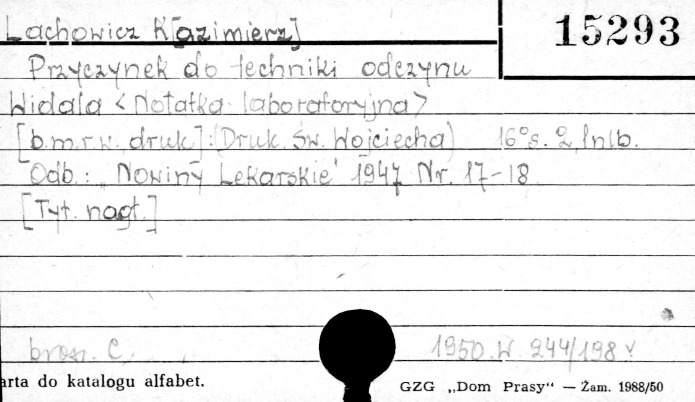 Lachowicz K[azimierz]
15293
Przyczynek do techniki odczynu
Widala <Notatka laboratoryjna>
[b.m.r.w. druk]: (Druk. Św. Wojciecha) 16° s. 2, lnlb.
Odb.: „Nowiny Lekarskie' 1947 Nr. 17-18
[Tyt. nagł.]
brosz. C. 1950 W 244/198
arta do katalogu alfabet.
GZG „Dom Prasy“ — Żam. 1988/50